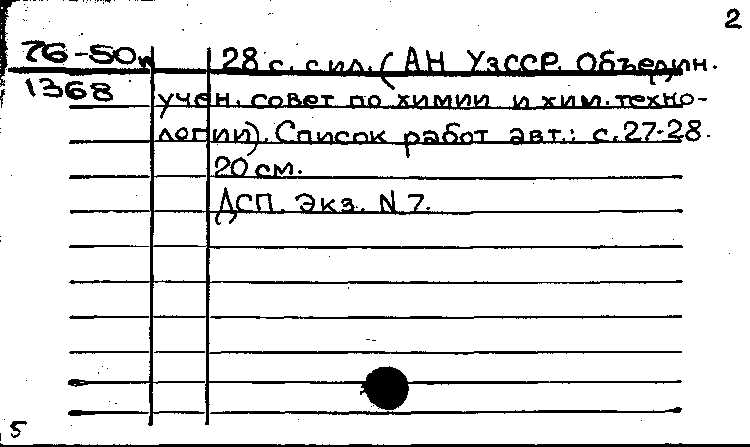 2
76-50к 28 с. с ил. (АН УзССР. Объедин.
1368 учен. совет по химии и хим. техно-
логии). Список работ авт.: с. 27-28.
20 см.
ДСП. Экз. N 7.
5